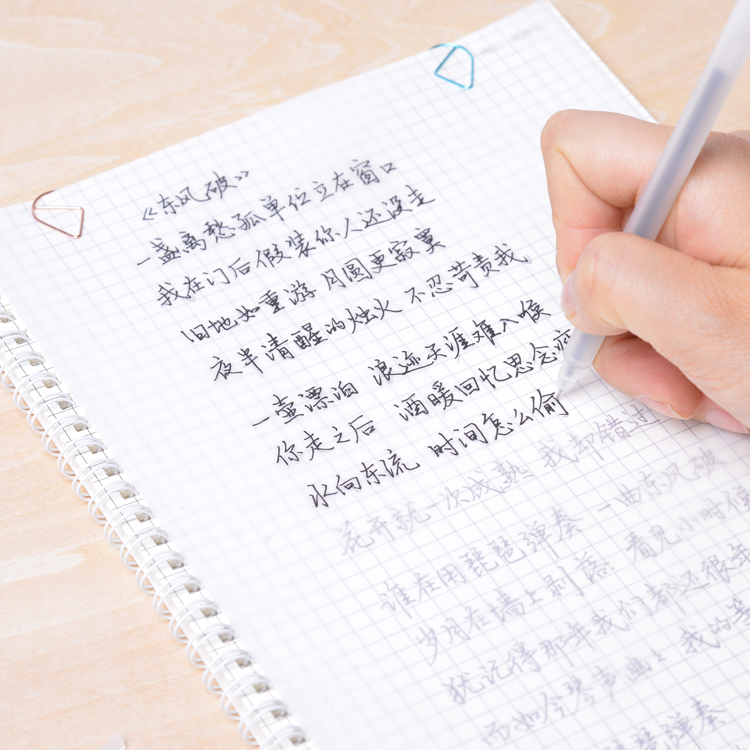 《东风破》
一盏离愁孤单伫立在窗口
我在门后假装你人还没走
旧地如重游 月圆更寂寞
夜半清醒的烛火 不忍苛责我
一壶漂泊 浪迹天涯难入喉
你走之后 酒暖回忆思念
水向东流 时间怎么偷
花开就一次成熟 我却错过
谁在用琵琶弹奏 一曲东风破
岁月在墙上剥落 看见小时候
犹记得那年我们都还很年
而如今琴声幽々 我的等
琵琶弹奏